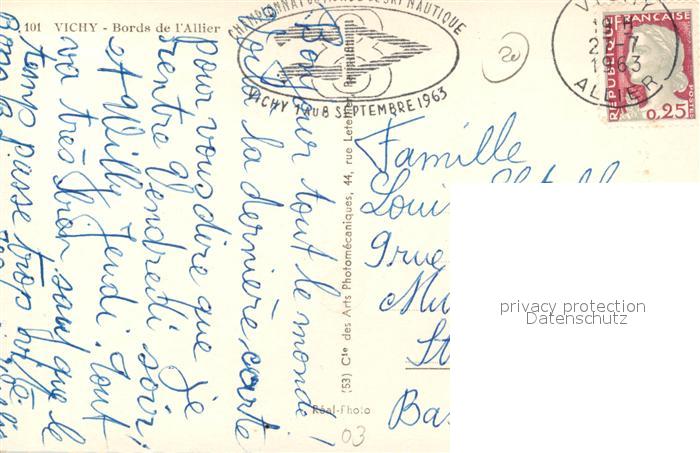 101 VICHY - Bords de l'Allier
CHAMPIONNAT DU MONDE DE SKI NAUTIQUE
VICHY 1 AU 8 SEPTEMBRE 1963
20
VICHY
19 H
22-7
1963
ALLIER
REPUBLIQUE FRANCAISE
POSTES
0,25
Bonjour tout le monde !
Voilà la dernière carte
pour vous dire que je
rentre Vendredi soir.
et Willy Jeudi. Tout
va très bien sauf que le
temps passe trop vite.
Bons
(53) Cie des Arts Photomécaniques, 44, rue Letellier
Réal-Photo
03
Famille
Loui
9 rue
Mu
St
Ba
privacy protection
Datenschutz